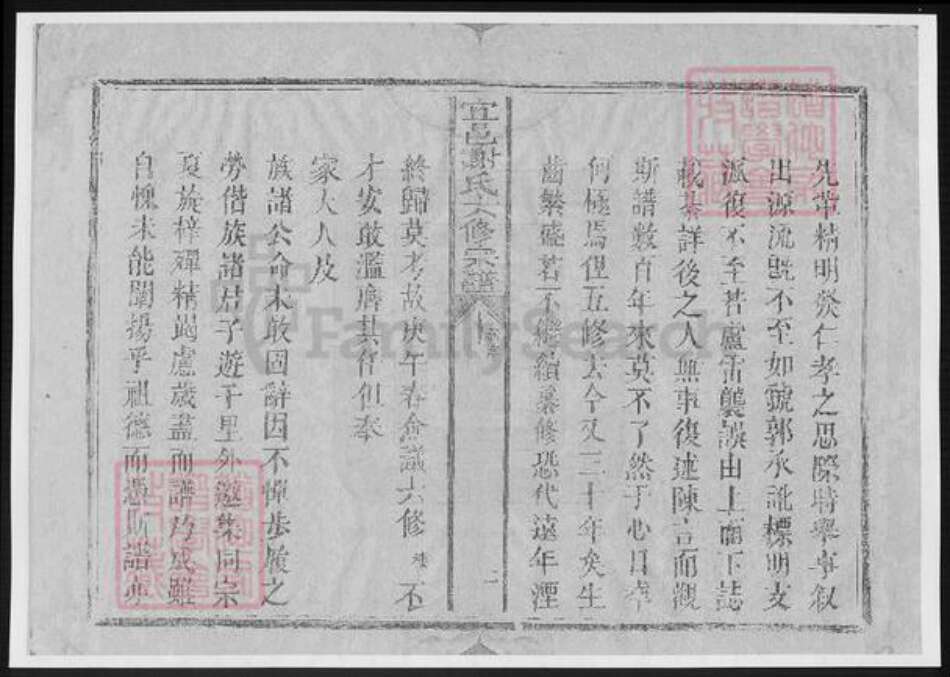 先輩精明發仁孝之思際時舉事叙
出源流旣不至如虢郭承訛標明支
派復不至若盧雷襲誤由上而下誌
載綦詳後之人無事復述陳言而觀
斯譜數百年來莫不了然于心目幸
何極焉但五修去今又三十年矣生
齒繁盛若不繼續纂修恐代遠年湮
宜邑謝氏六修宗譜
二
終歸莫考故庚午春僉議六修 不
才安敢濫膺其任但奉
家大人及
族諸公命未敢固辭因不憚步履之
勞偕族諸君子遊千里外邀集同宗
爰旋梓殫精竭慮歲盡而譜乃成雖
自愧未能闡揚乎祖德而憑斯譜亦
FamilySearch